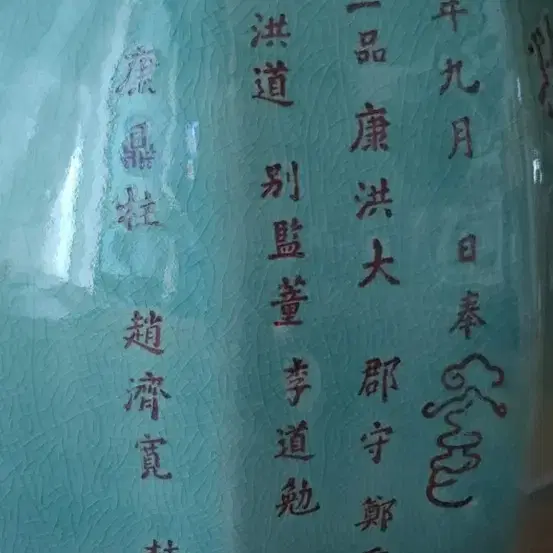 年九月 日奉
一品 康洪大 郡守 鄭
洪道 別監 董 李道勉
康鼎柱 趙濟寬